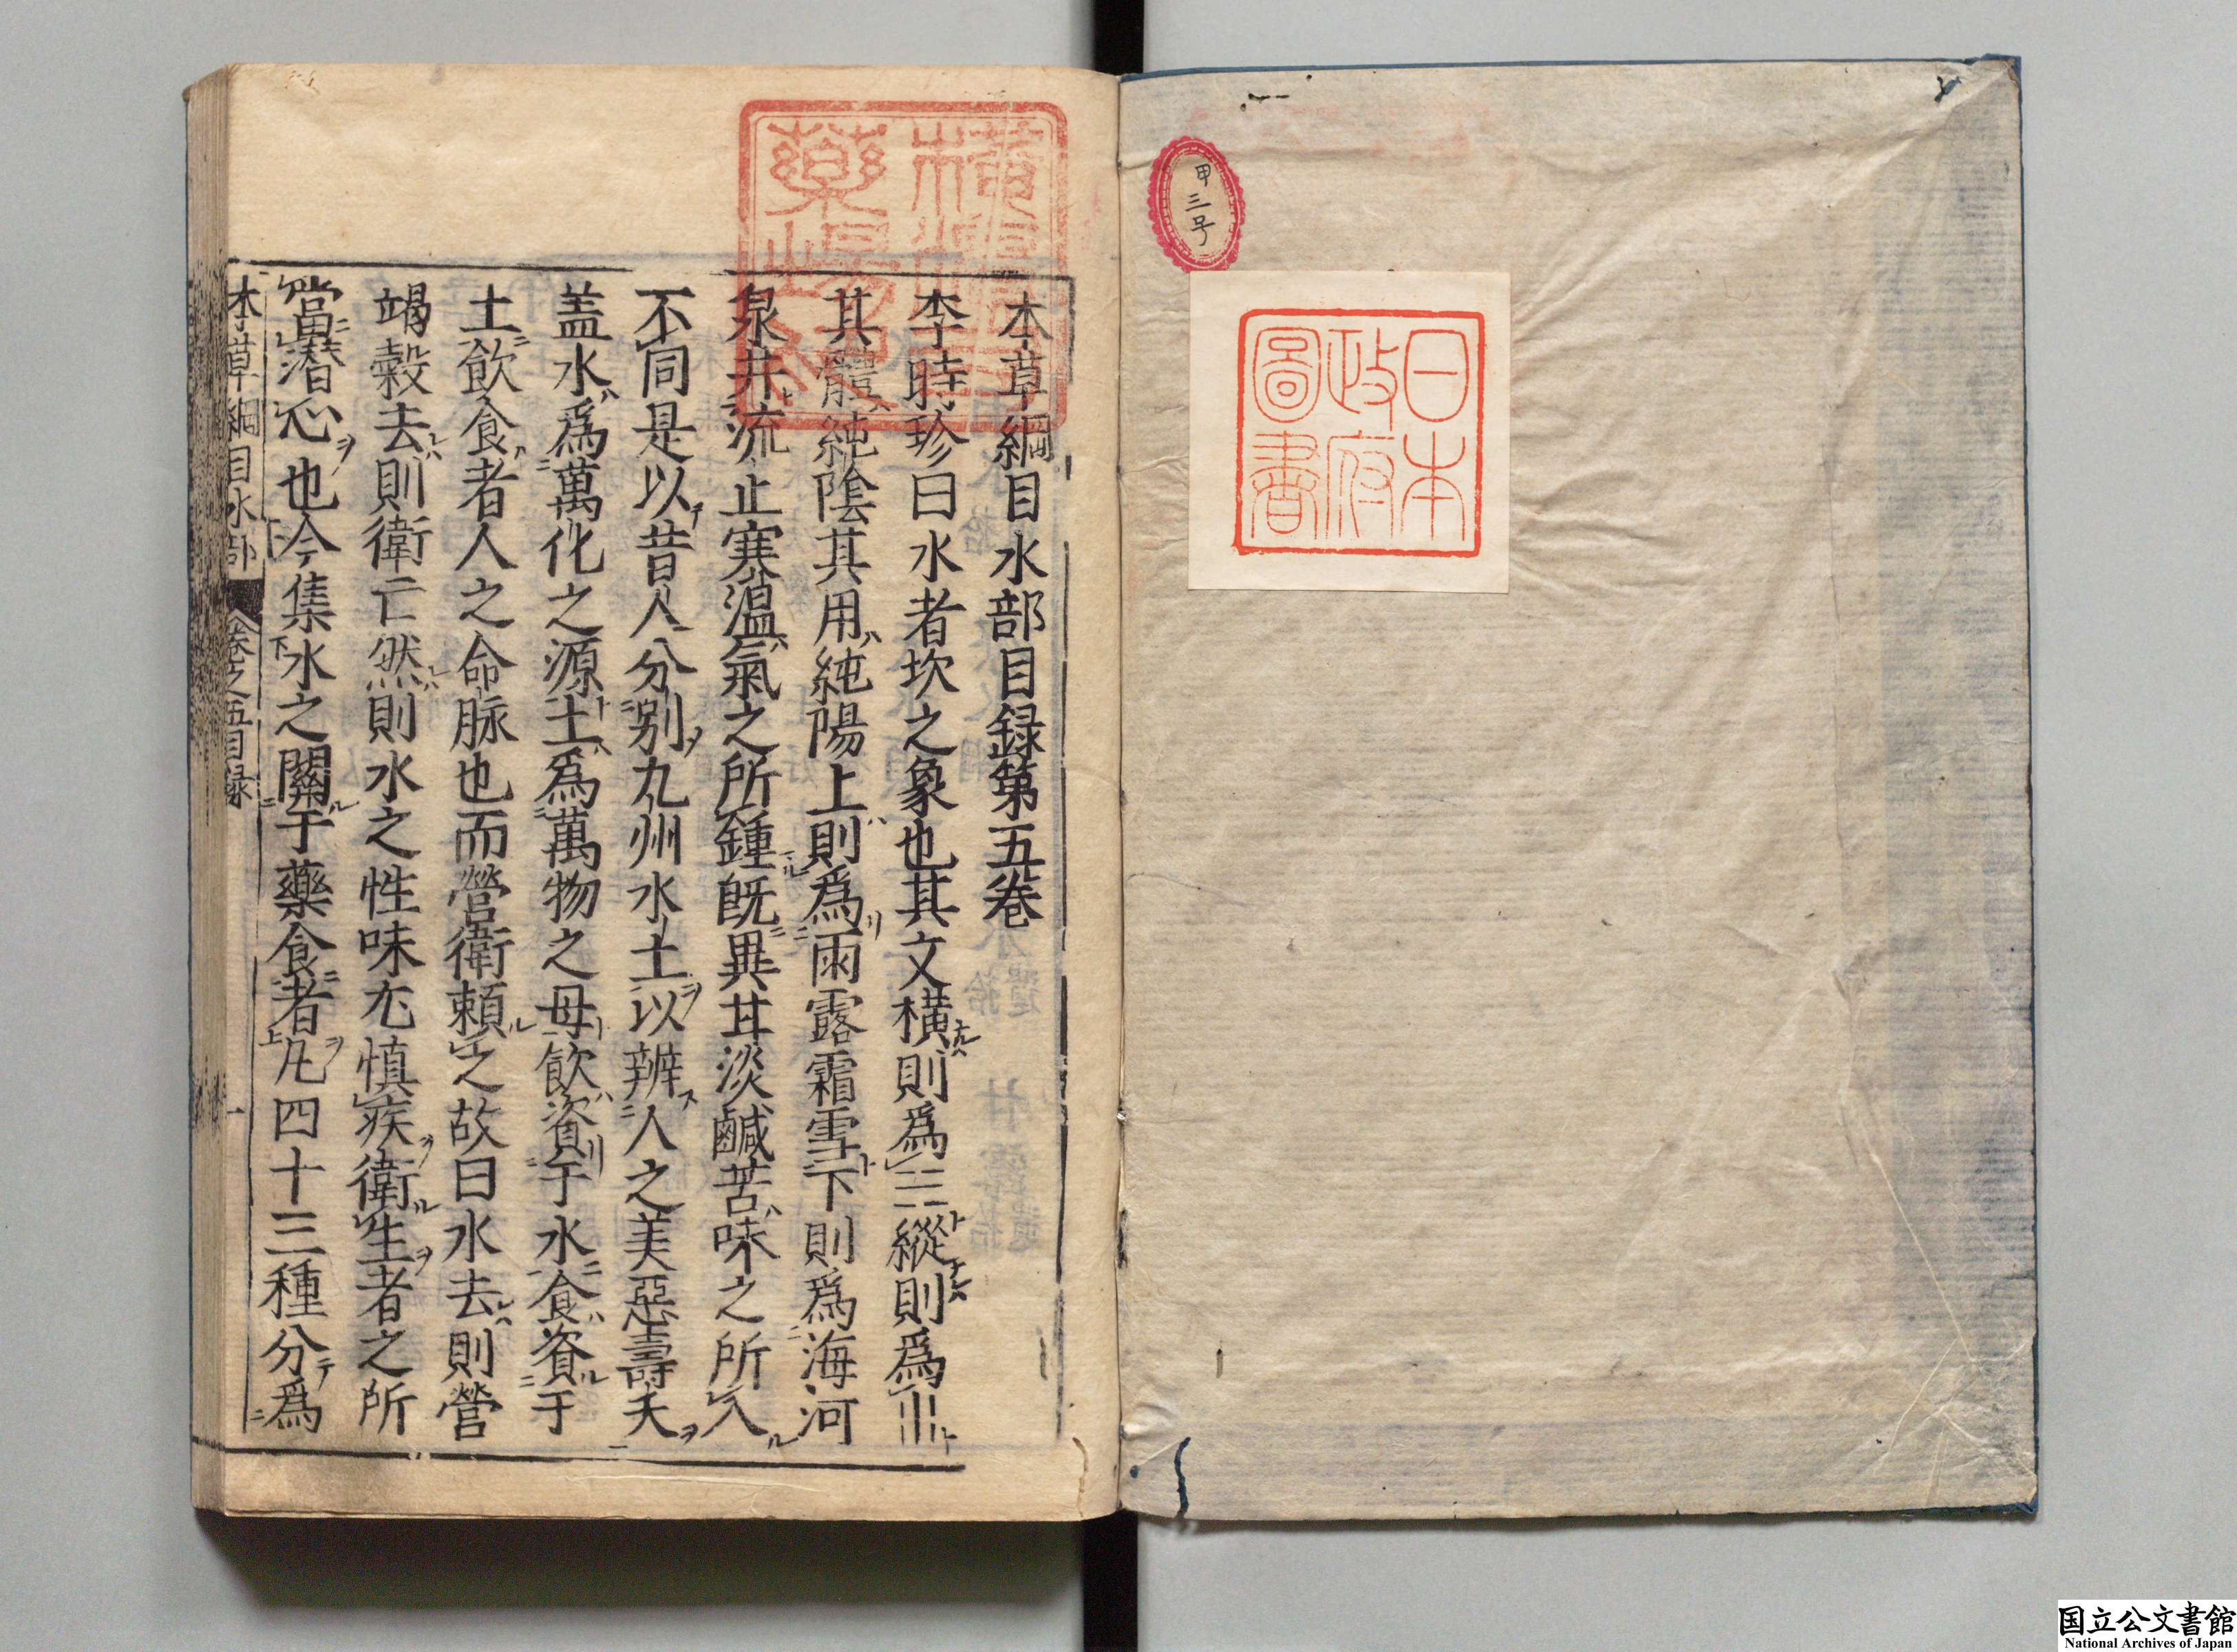 甲三号
日本
政府
圖書
本草綱目水部目録第五巻
李時珍曰水者坎之象也其文橫則爲☵縱則爲
其體純陰其用純陽上則爲雨露霜雪下則爲海河
泉井流止寒溫氣之所鍾既異甘淡鹹苦味之所入
不同是以昔人分別九州水土以辨人之美惡壽夭
盖水爲萬化之源土爲萬物之母飲資于水食資于
土飲食者人之命脉也而營衛頼之故曰水去則營
竭穀去則衛亡然則水之性味尤慎疾衛生者之所
當潜心也今集水之關于藥食者凡四十三種分爲
本草綱目水部 卷之五目録 一
国立公文書館
National Archives of Japan